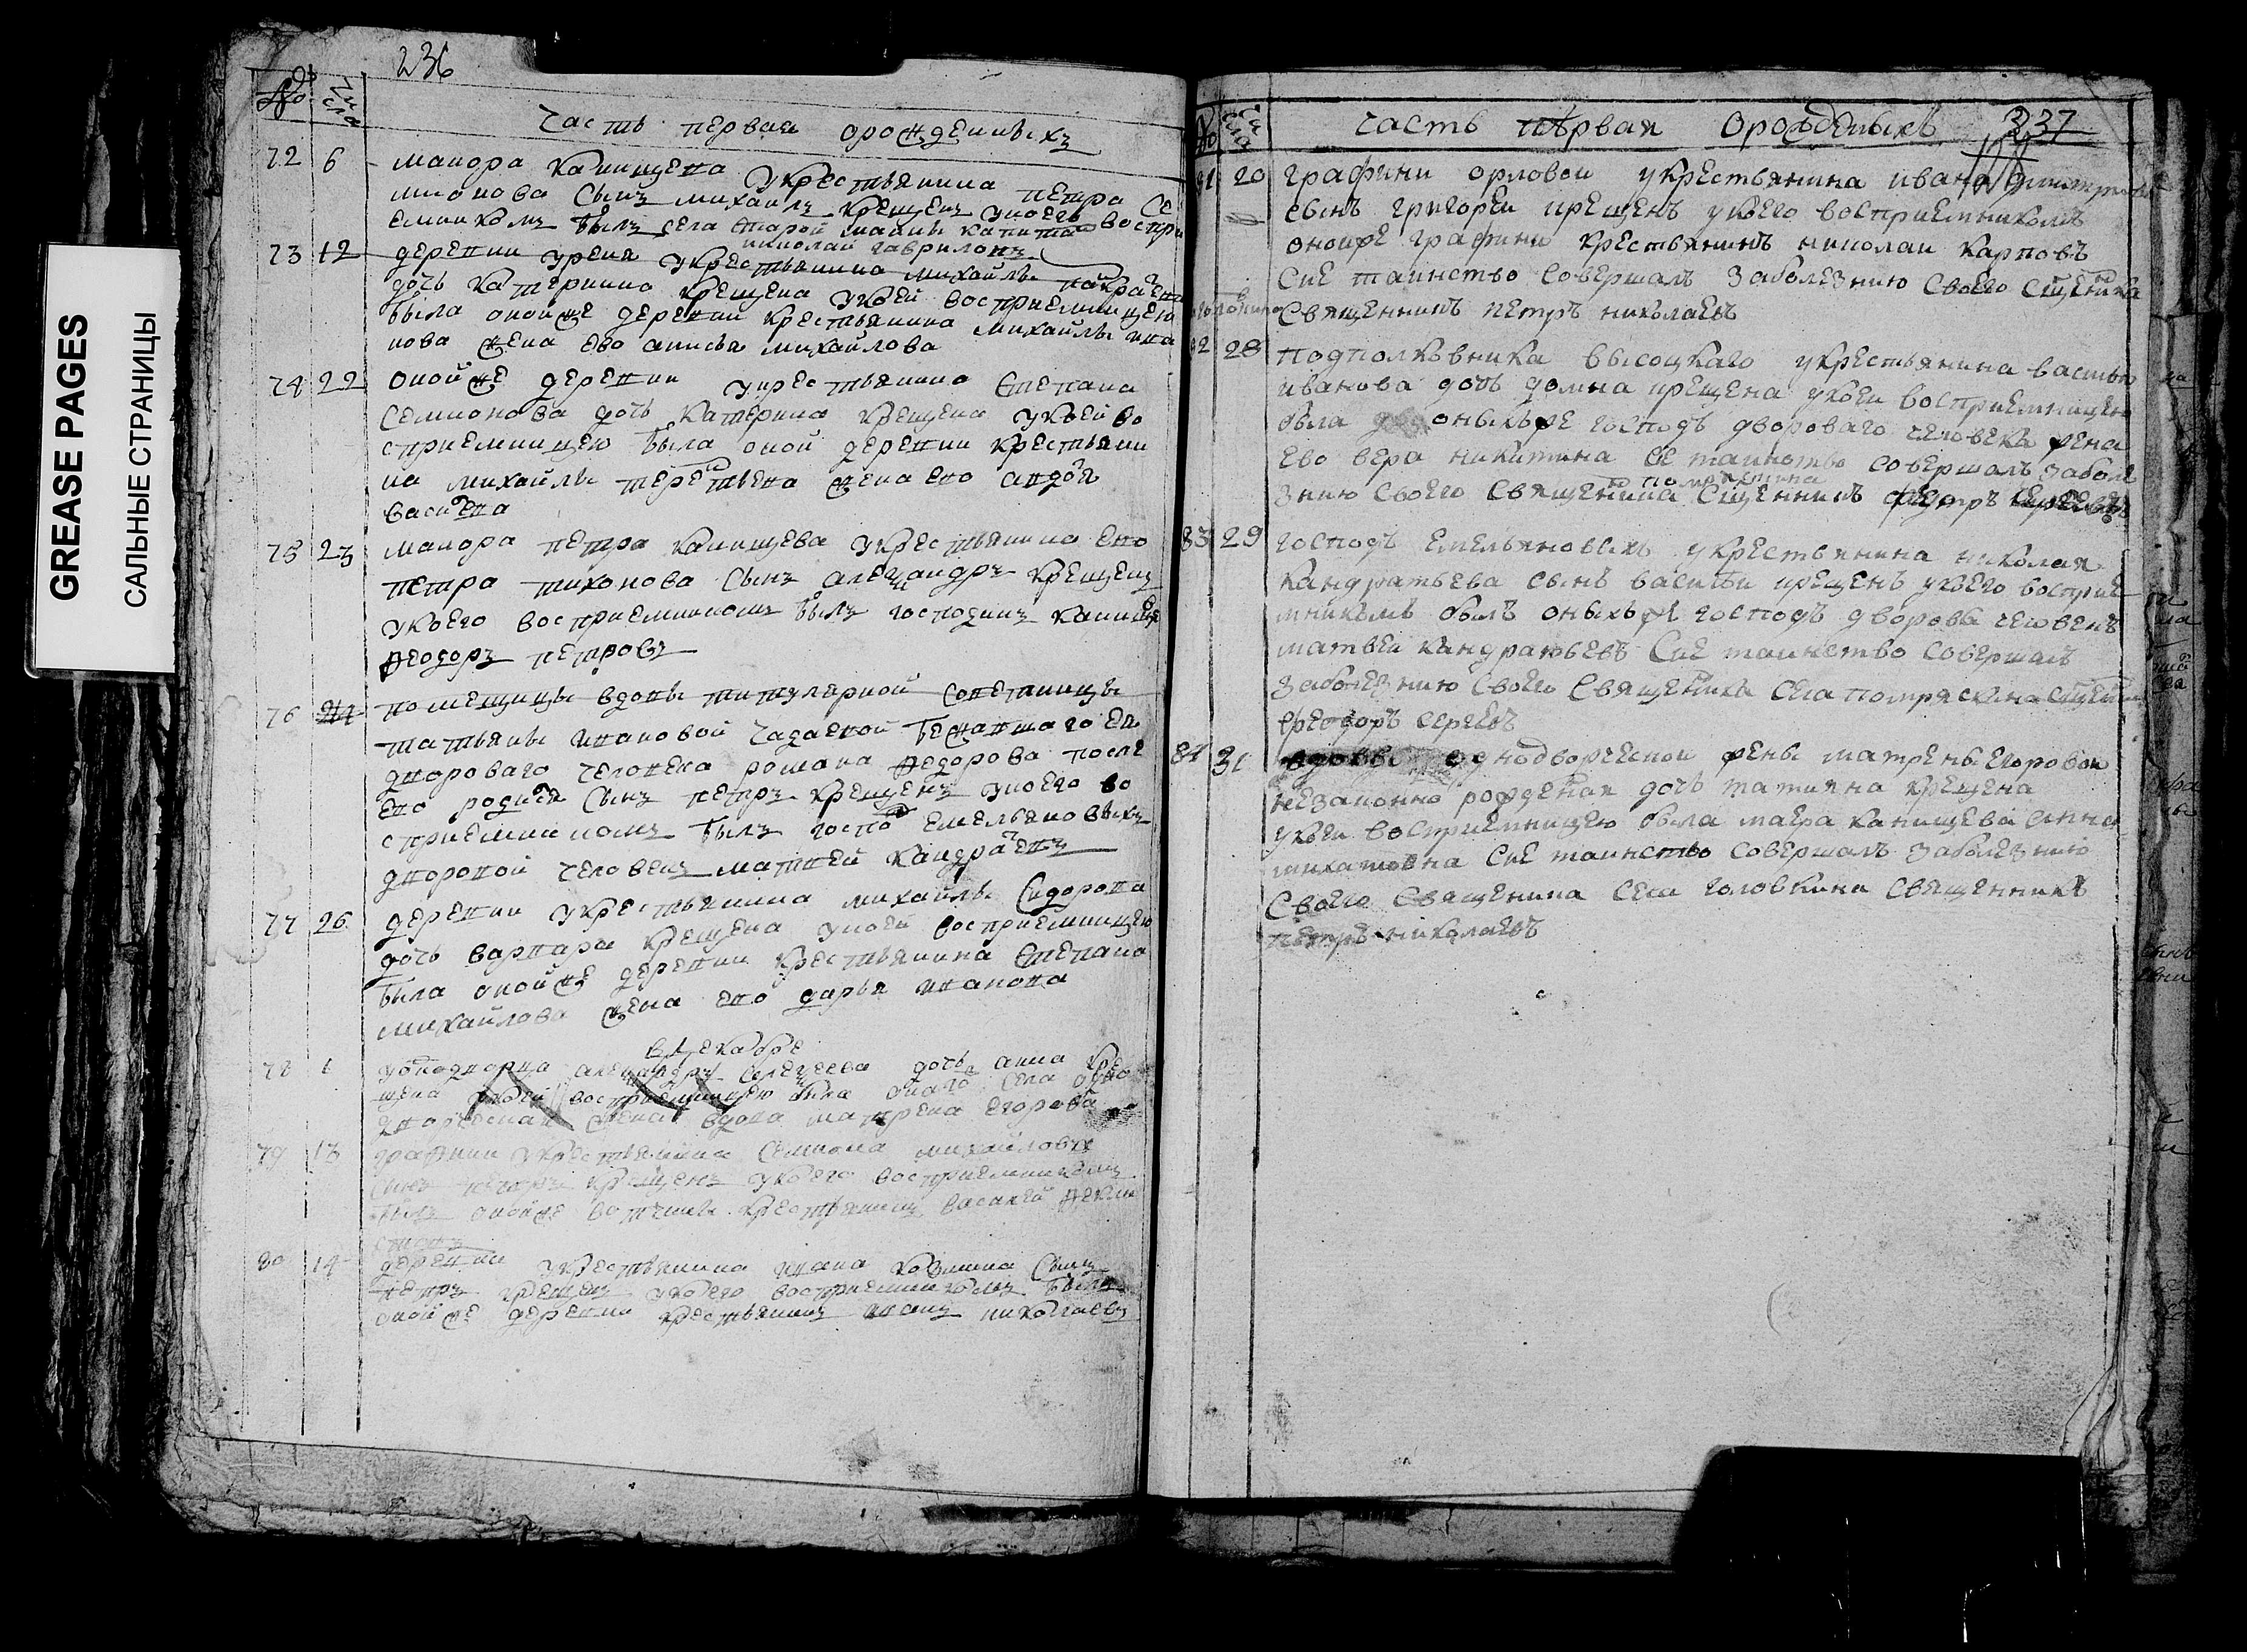 GREASE PAGES
САЛЬНЫЕ СТРАНИЦЫ
236
№ числа
часть первая орожденныхъ
72 6 маиора канищева укрестьянина петра се
мионова сынъ михаилъ крещенъ укоего воспри
емникомъ былъ села старой маины капитанъ
николай гавриловъ
73 12 деревни урена укрестьянина михайлы
дочь катерина крещена укоей восприемницею
была оной же деревни крестьянина михайлы ива
нова жена ево анисья михайлова
74 22 оной же деревни укрестьянина степана
семионова дочь катерина крещена укоей во
сприемницею была оной деревни крестьяни
на михайлы терентьева жена ево авдотья
васильева
75 23 маиора петра канищева укрестьянина ево
петра тихонова сынъ александръ крещенъ
укоего восприемникомъ былъ господинъ канищевъ
феодоръ петровъ
76 24 помещицы вдовы титулярной советницы
татьяны ивановой чадаевой бежавшаго ея
двороваго человека романа федорова после
ево родился сынъ петръ крещенъ укоего во
сприемникомъ былъ господъ емельяновыхъ
дворовой человекъ матвей кандратьевъ
77 26 деревни укрестьянина михайлы сидорова
дочь варвара крещена укоей восприемницею
была оной же деревни крестьянина степана
михайлова жена ево дарья иванова
вдекабре
78 1 уоднодворца александра алексеева дочь анна кре
щена укоей восприемницею была онаго села одно
дворческая жена вдова матрена егорова
79 13 графини укрестьянина семиона михайлова
сынъ петръ крещенъ укоего восприемникомъ
былъ оной же вотчины крестьянинъ василей
80 14 деревни укрестьянина ивана козмина сынъ
петръ крещенъ укоего восприемникомъ былъ
оной же деревни крестьянинъ иванъ николаевъ
№ числа
часть первая орожденныхъ 237
81 20 графини орловои укрестьянина ивана дмитриева
сынъ григореи крещенъ укоего восприемникомъ
оноиже графини крестьянинъ николаи карповъ
Сие таинство совершалъ заболезнию своего сщенника
головкина священникъ петръ николаевъ
82 28 подполковника высоцкаго укрестьянина василья
иванова дочь домна крещена укоеи восприемницею
была оныхъже господъ двороваго человека жена
ево вера никитина сие таинство совершалъ заболе
знию своего священника помряскина сщенникъ федоръ сергеевъ
83 29 господъ емельяновыхъ укрестьянина николая
кандратьева сынъ василеи крещенъ укоего восприе
мникомъ былъ оныхъже господъ дворовои человекъ
матвеи кандратьевъ Сие таинство совершалъ
заболезнию своего священника села помряскина сщенникъ
федоръ сергеевъ
84 31 вдовы однодворческои жены матрены егоровои
незаконно рожденая дочь татияна крещена
укоеи восприемницею была маера канищева анна
михаиловна Сие таинство совершалъ заболезнию
своего священника села головкина священникъ
петръ николаевъ